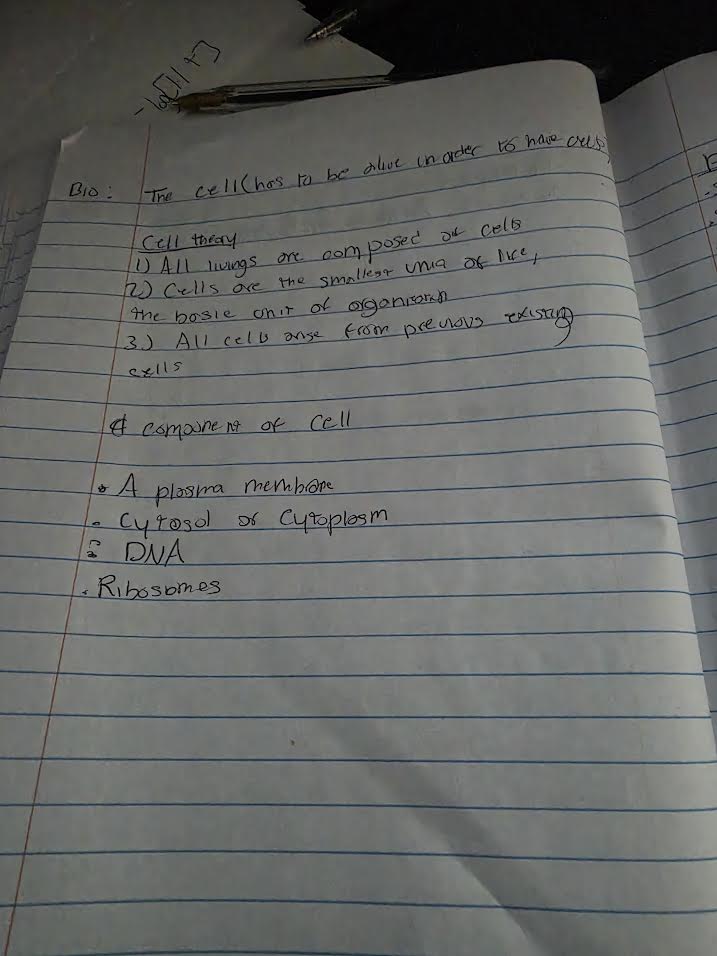 -log[H+]
Bio: The cell (has to be alive in order to have cells)
Cell theory
1) All livings are composed of cells
2) Cells are the smallest unia of lice,
the basic unit of organisamn
3.) All cells arise from previous existing
cells
4 component of cell
• A plasma membrane
• Cytosol or Cytoplasm
: DNA
• Ribosomes